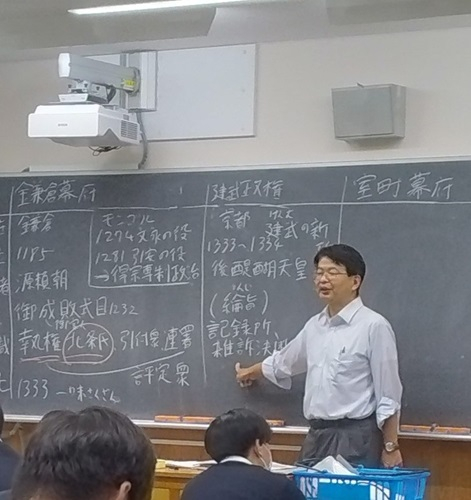 鎌倉幕府
鎌倉
1185
源頼朝
御成敗式目1232
執権 北条 引付衆 連署
評定衆
1333
モンゴル
1274文永の役
1281弘安の役
→得宗専制政治
建武政権
京都
建武の新
1333~1336
後醍醐天皇
(綸旨)
記録所
雑訴決断
室町幕府
EPSON